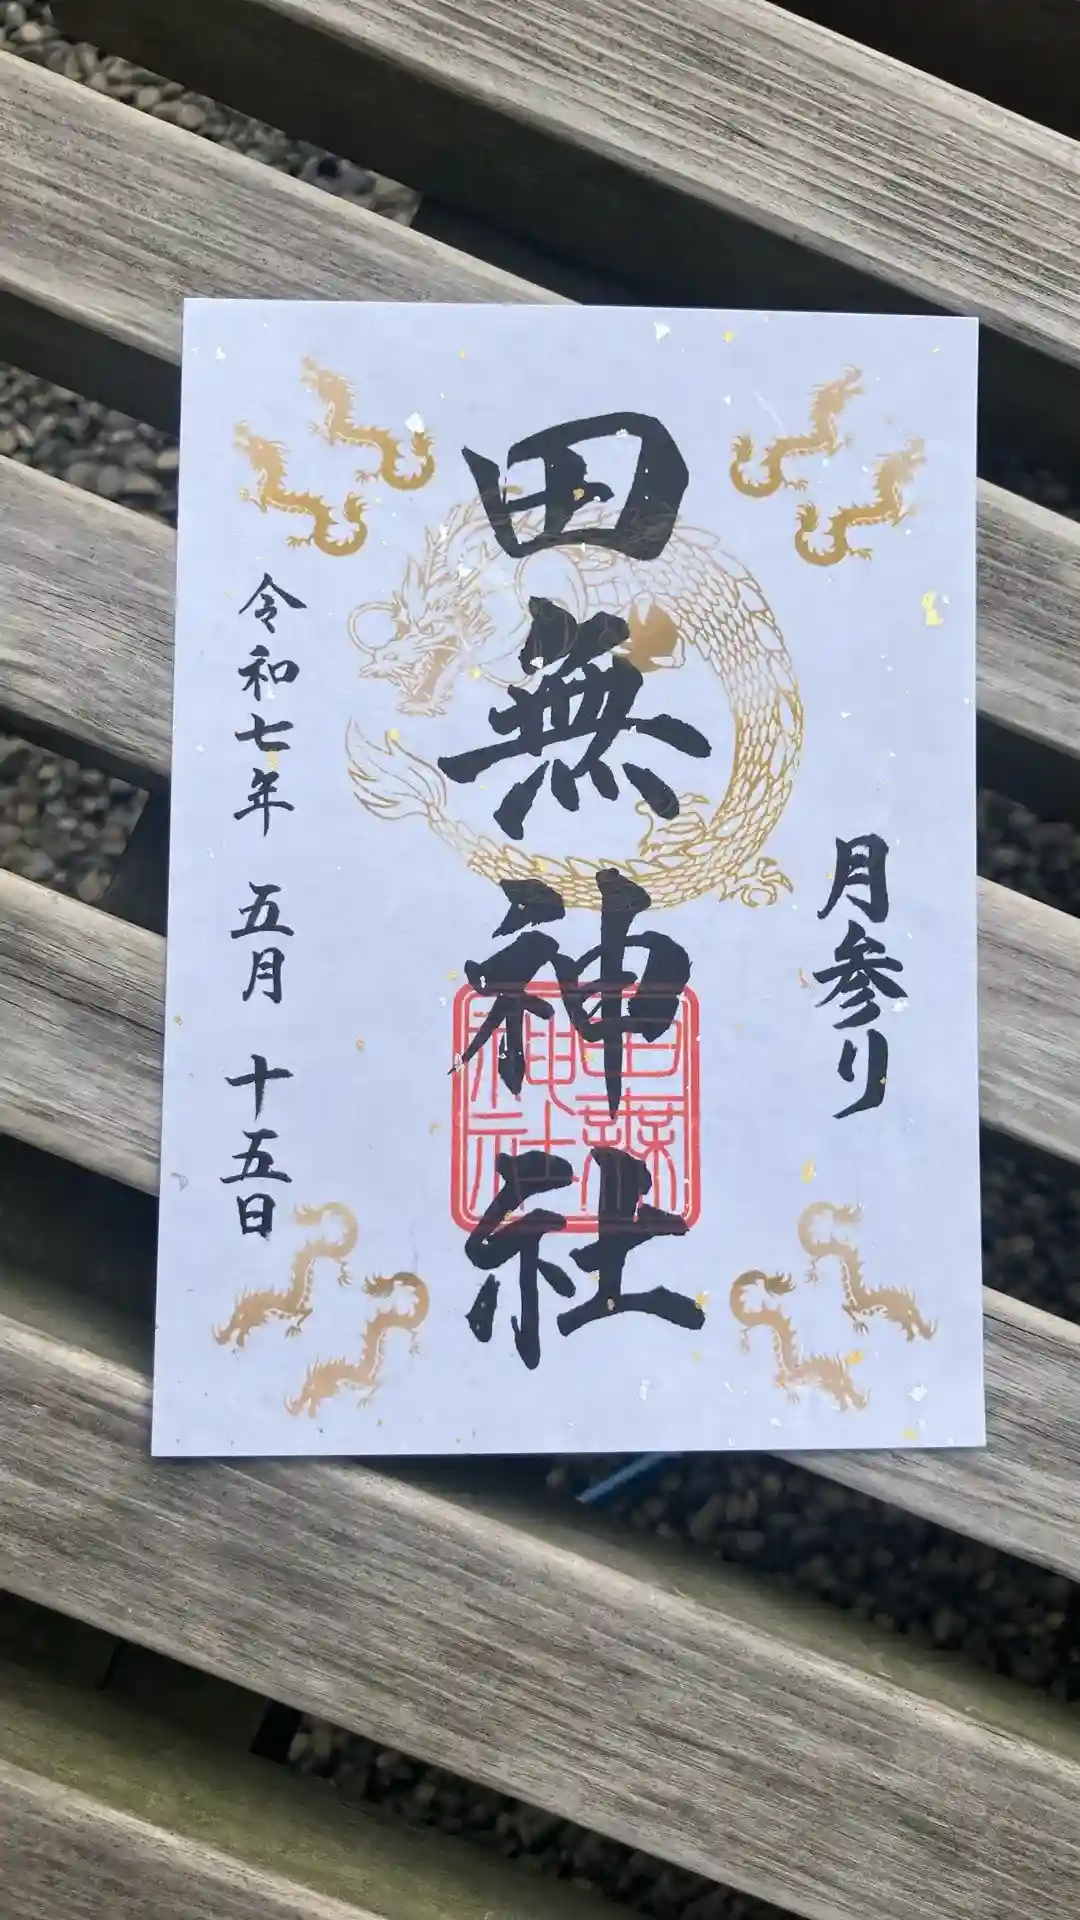 月参り
田無神社
田無神社
令和七年 五月 十五日